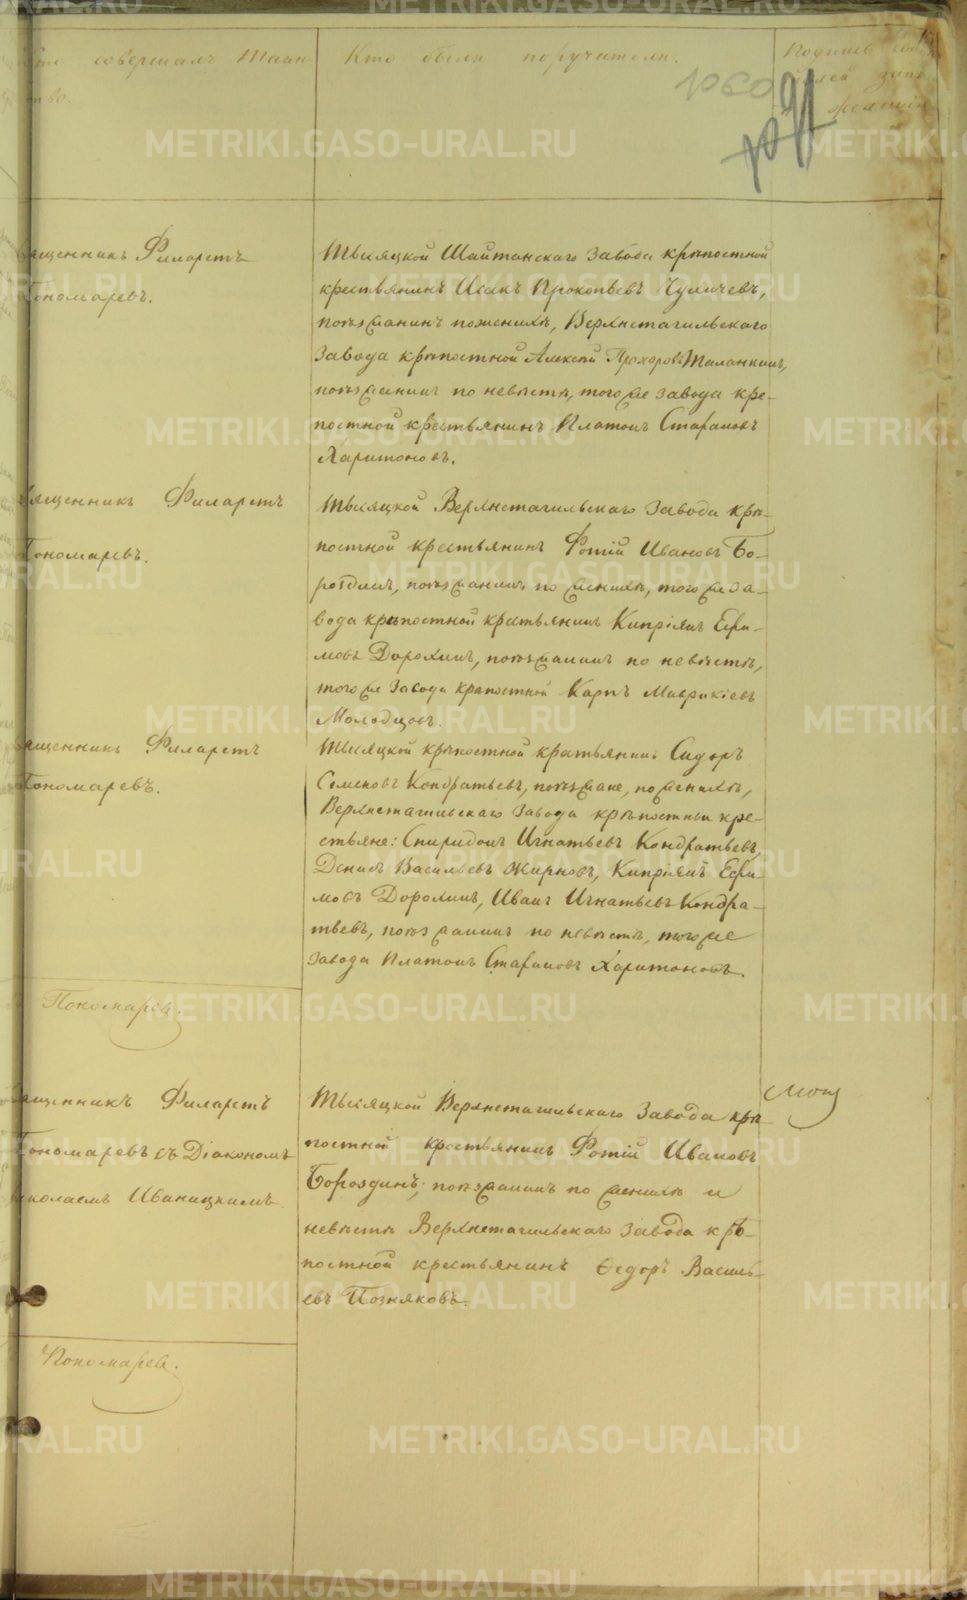 совершалъ Таин
ство.
Кто были поручители.
Подпись
1060
91
Священникъ Филаретъ
Пономаревъ.
Тысяцкой Шайтанскаго завода крѣпостной
крестьянинъ Исакъ Прокопьевъ Чуличевъ,
поѣзжанинъ по женихѣ, Верхнетагильскаго
завода крѣпостной Алексѣй Прохоровъ Таланкинъ,
поѣзжанинъ по невѣстѣ, того же завода кре-
постной крестьянинъ Платонъ Стафановъ
Харитоновъ.
Священникъ Филаретъ
Пономаревъ.
Тысяцкой Верхнетагильскаго завода крѣ-
постной крестьянинъ Фотій Ивановъ Бо-
роздинъ, поѣзжанинъ по женихѣ, того же за-
вода крѣпостной крестьянинъ Кипріянъ Ефи-
мовъ Дорохинъ, поѣзжанинъ по невѣстѣ,
того же завода крѣпостной Карпъ Маврикіевъ
Молодцовъ.
Священникъ Филаретъ
Пономаревъ.
Тысяцкой крѣпостной крестьянинъ Сидоръ
Семеновъ Кондратьевъ, поѣзжане, по женихѣ,
Верхнетагильскаго завода крѣпостныи кре-
стьяне: Спиридонъ Игнатьевъ Кондратьевъ,
Денисъ Васильевъ Жирновъ, Кипріянъ Ефи
мовъ Дорохинъ, Иванъ Игнатьевъ Кондра-
тьевъ, поѣзжанинъ по невѣстѣ, того же
завода Платонъ Стафановъ Харитоновъ.
Пономарев.
Священникъ Филаретъ
Пономаревъ съ Діакономъ
Николаемъ Иваницкимъ
Тысяцкой Верхнетагильскаго завода крѣ
постной крестьянинъ Фотій Ивановъ
Бороздинъ; поѣзжанинъ по женихѣ и
невѣстѣ Верхнетагильскаго завода крѣ-
постной крестьянинъ Ѳедоръ Василь
евъ Позняковъ.
Пономарев.
METRIKI.GASO-URAL.RU